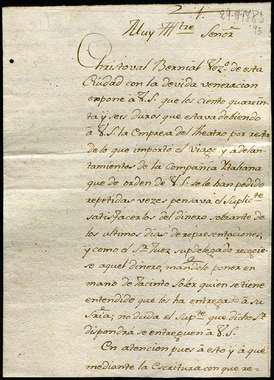 Muy Iltre Señor
Christoval Bernial Vezº de esta
Ciudad con la devida veneracion
expone a V.S. que los ciento quaren
ta y seis duros que estava debiendo
à V.S. la Empresa del Theatro por resto
de lo que importò el Viage y adelan
tamientos de la Compañia Italiana
que de orden de V.S. se le han pedido
repetidas vezes pensava el Suplte
satisfacerlos del dinero sobrante de
los ultimos dias de representaciones,
y como el Sr Juez Subdelegado recogie
se aquel dinero, mandolo poner en
mano de Jacinto Soler quien se tiene
entendido que los ha entregado a su
Sria; no duda el Supte que dicho Sr
dispondrà se entreguen à V.S.
En atencion pues à esto y a que
mediante la Escritura con que re-